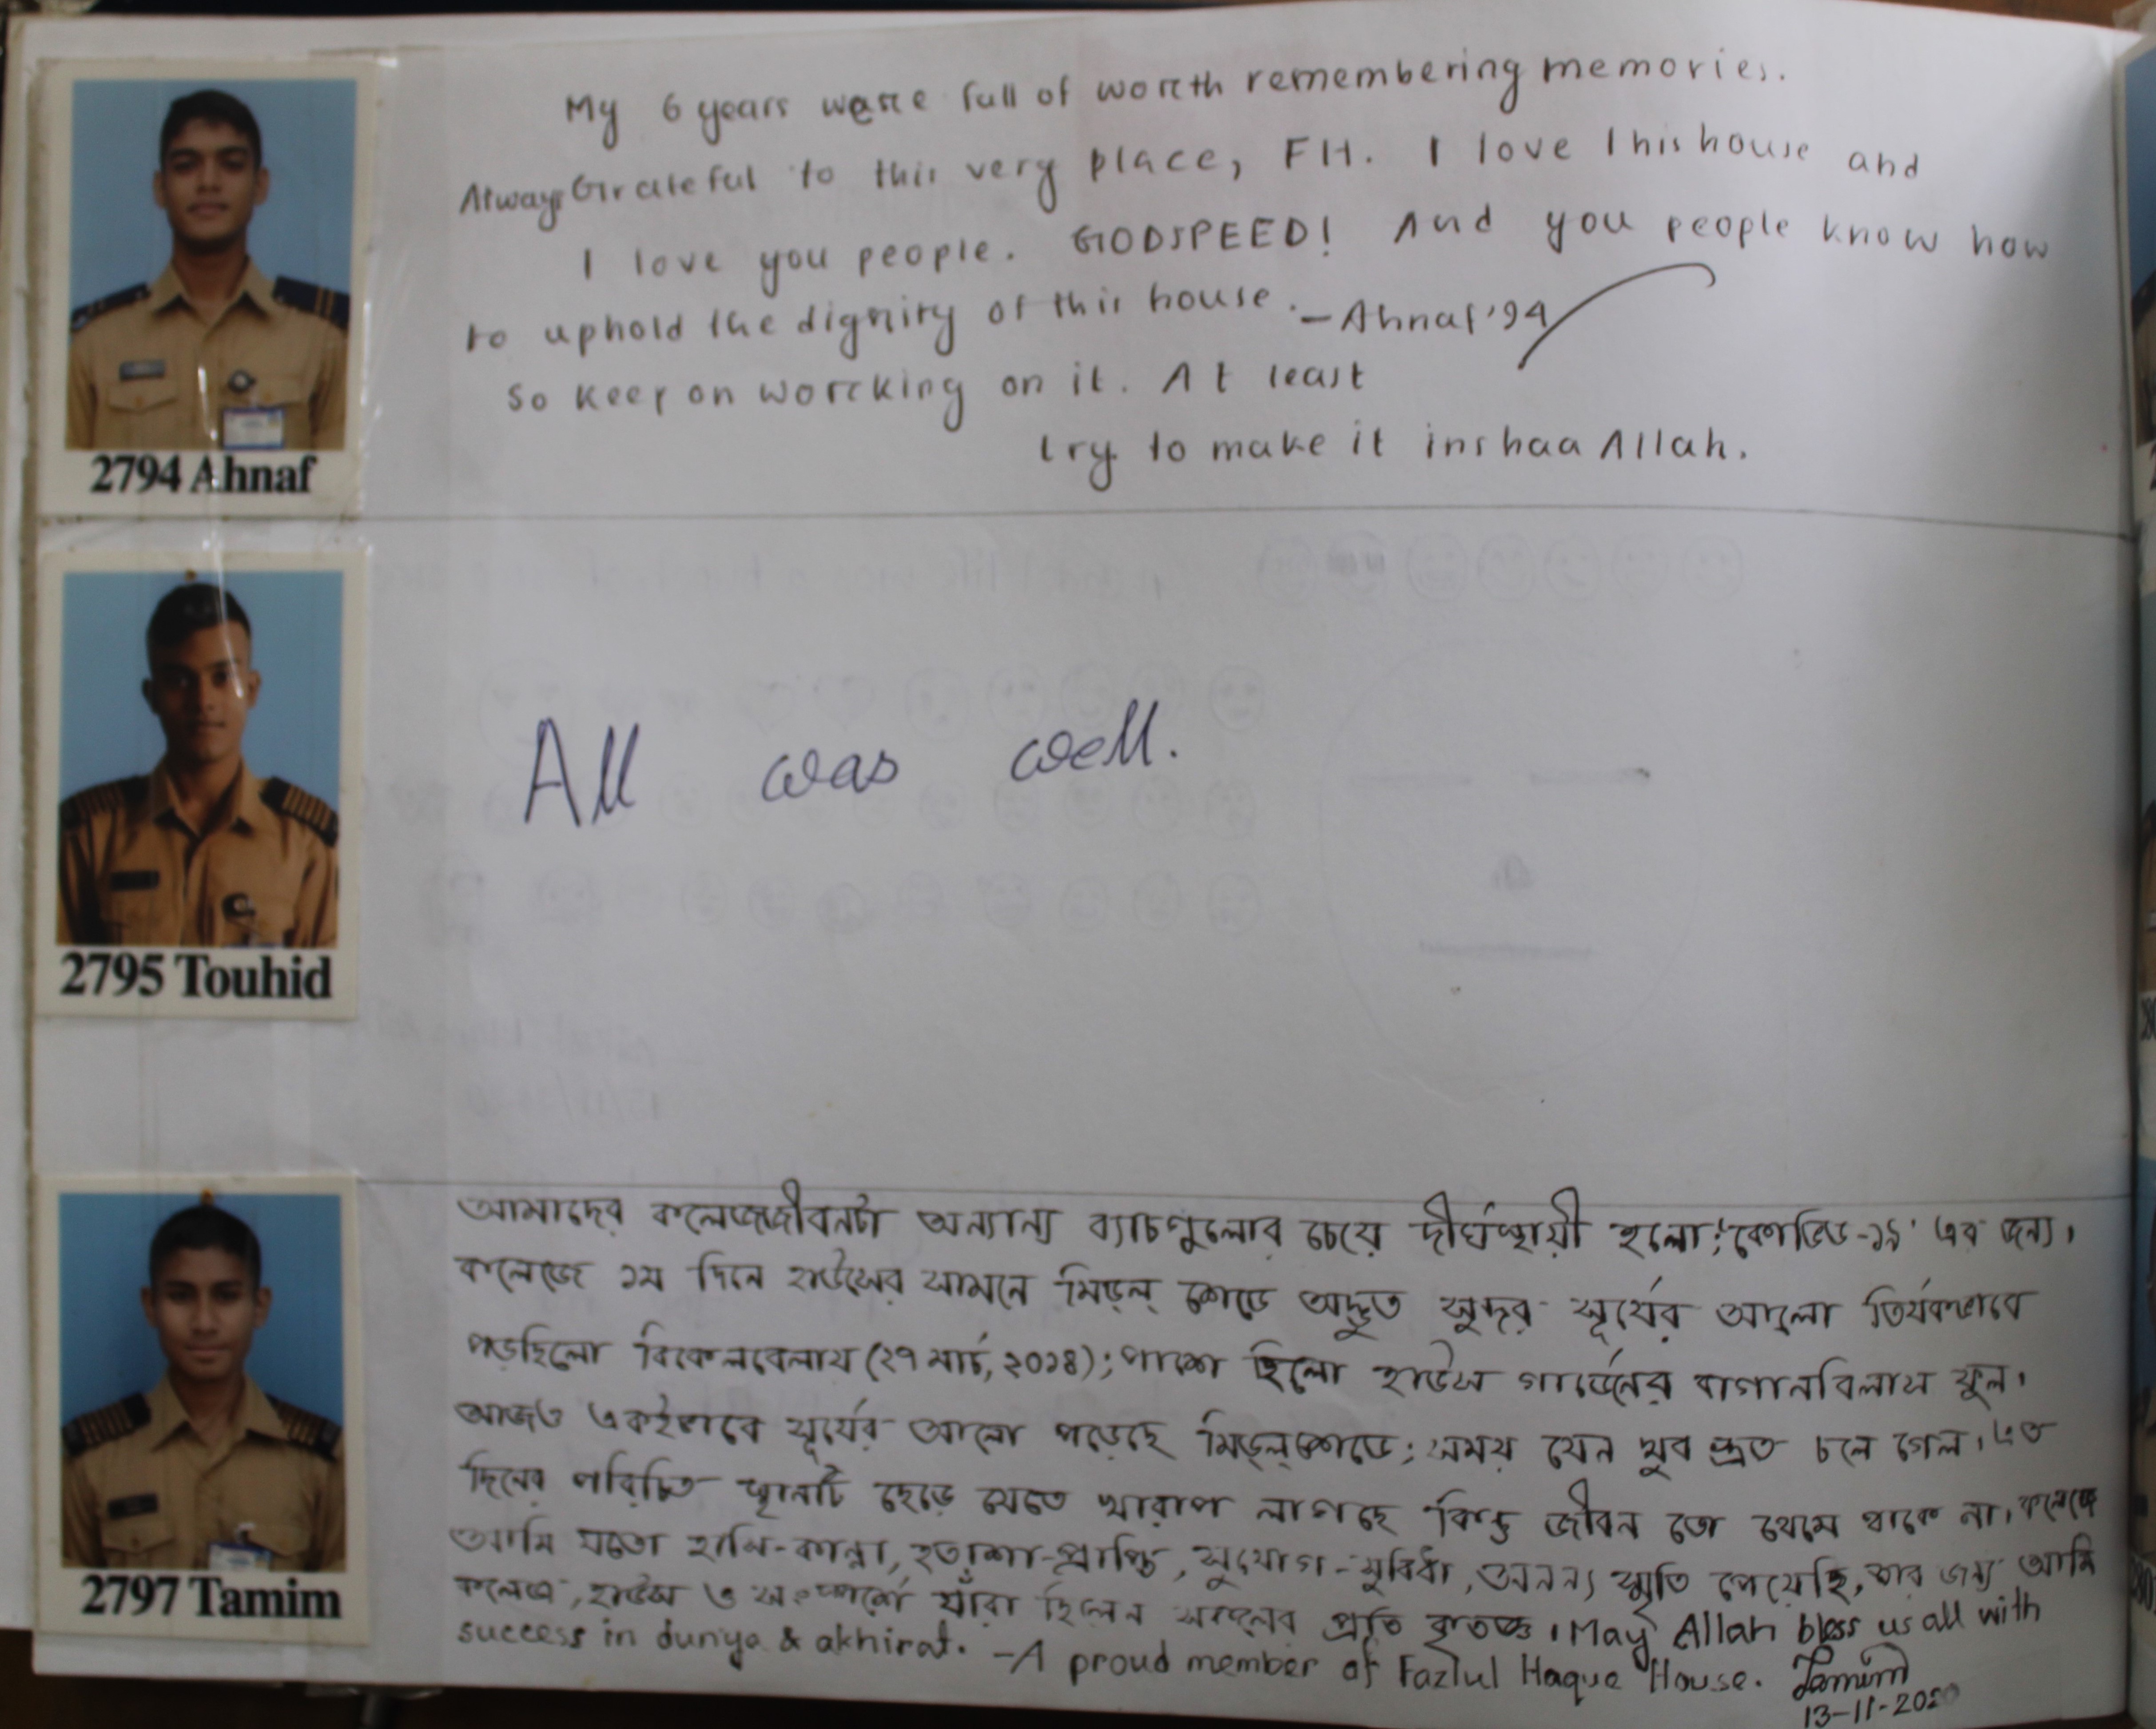 My 6 years were full of worth remembering memories.
Always Grateful to this very place, FH. I love this house and
I love you people. GODSPEED! And you people know how
to uphold the dignity of this house. - Ahnaf '94
So keep on working on it. At least
try to make it inshaa Allah.
2794 Ahnaf
All was well.
2795 Touhid
আমাদের কলেজজীবনটা অন্যান্য ব্যাচগুলোর চেয়ে দীর্ঘস্থায়ী হলো; 'কোভিড-১৯' এর জন্য।
কলেজে ১ম দিনে হাউসের সামনে মিড্ল্ শেডে অদ্ভুত সুন্দর সূর্যের আলো তির্যকভাবে
পড়ছিলো বিকেলবেলায় (২৭ মার্চ, ২০১৪); পাশে ছিলো হাউস গার্ডেনের বাগানবিলাস ফুল।
আজও একইভাবে সূর্যের আলো পড়েছে মিড্ল্ শেডে; সময় যেন খুব দ্রুত চলে গেল। এত
দিনের পরিচিত স্থানটি ছেড়ে যেতে খারাপ লাগছে কিন্তু জীবন তো থেমে থাকে না। কলেজে
আমি যতো হাসি-কান্না, হতাশা-প্রাপ্তি, সুযোগ-সুবিধা, অনন্য স্মৃতি পেয়েছি, তার জন্য আমি
কলেজ, হাউস ও সংস্পর্শে যাঁরা ছিলেন সকলের প্রতি কৃতজ্ঞ। May Allah bless us all with
success in dunya & akhirat. - A proud member of Fazlul Haque House. Tamim
13-11-2020
2797 Tamim